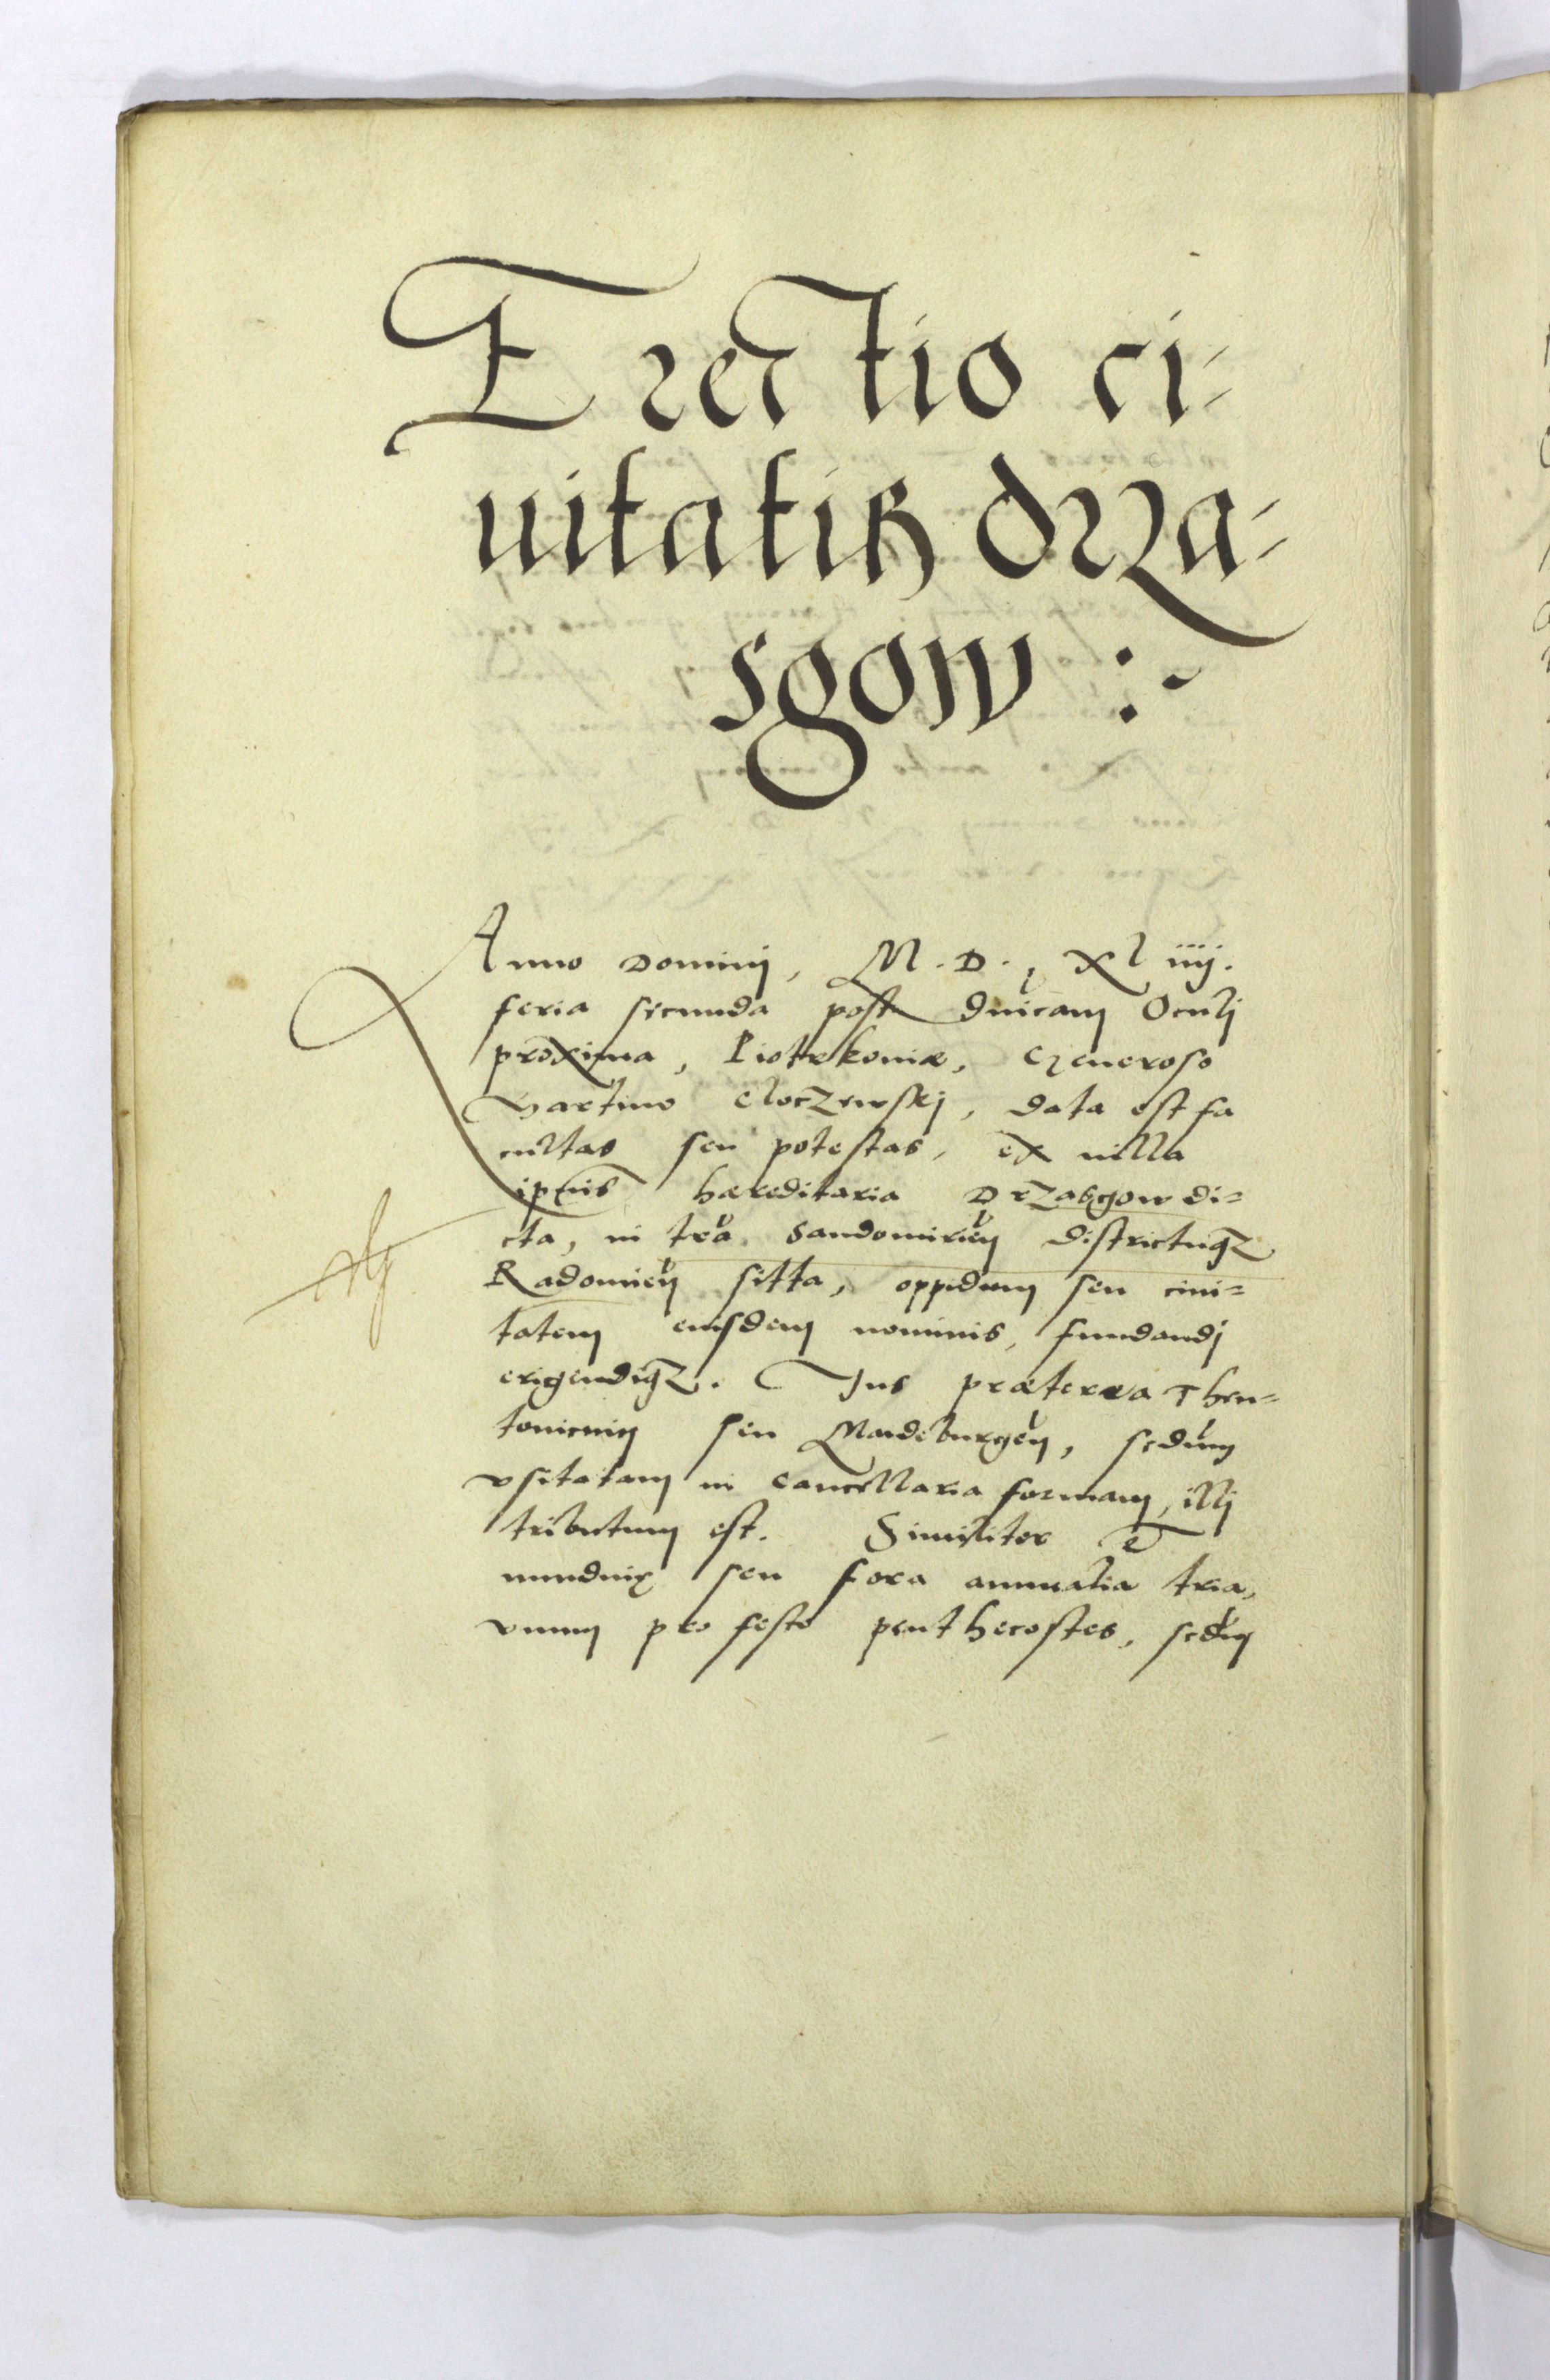 Erectio ci-
uitatis drza-
sgow :~
Anno Domini, M.D., XL iiij.
feria secunda post dnicam Oculj
proxima, Piotrkouiæ, Generoso
Martino Cloczewskj, data est fa
cultas seu potestas, ex uilla
ipsius hæreditaria Drzasgow di=
cta, in tra Sandomirien districtuq3
Radomien sitta, oppidum seu ciui=
tatem eiusdem nominis, fundandj
erigendiq3. Jus præterea Theu=
tonicum seu Maideburgen, scdum
vsitatam in cancellaria formam, illj
tributum est. Similiter e
nundinæ seu fora annualia tria,
vnum pro festo penthecostes, scdum